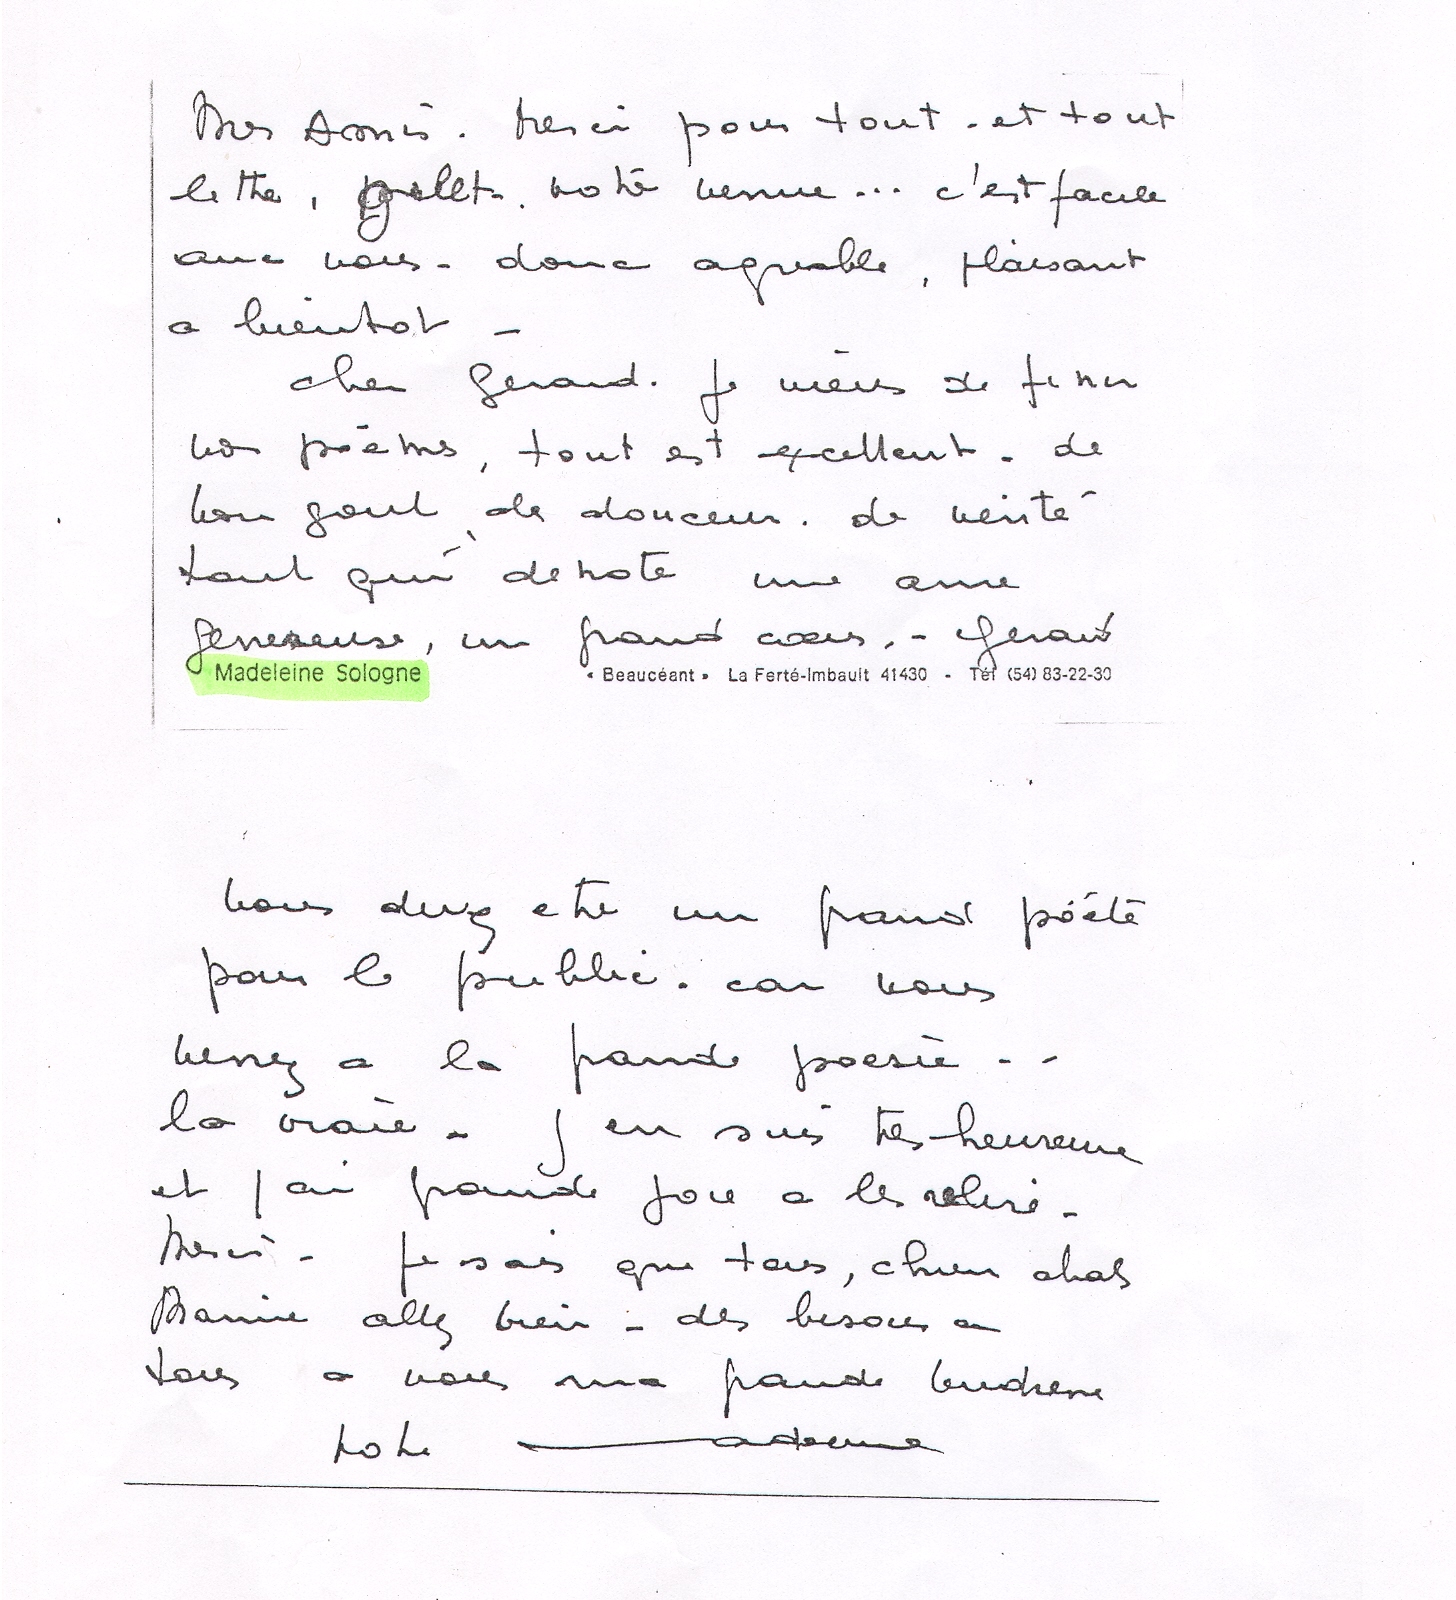 Mes Amis. Merci pour tout. et tout
le thé, galets. votre venue... c'est facile
avec vous - donc agreable, plaisant
a bientot -
cher Gérard. je viens de finir
vos poèmes, tout est excellent. de
bon gout, de douceur. de verité
tout qui denote une ame
genereuse, un grand coeur. - Gerard
Madeleine Sologne « Beaucéant » La Ferté-Imbault 41430 - Tél (54) 83-22-30
vous devez etre un grand poéte
pour le public. car vous
venez a la grande poesie - -
la vraie - j en suis très heureuse
et j ai grande joie a les relire -
Merci - je sais que tous, chien chats
Mamie allez bien - des bisous a
tous a vous ma grande tendresse
votre Madeleine